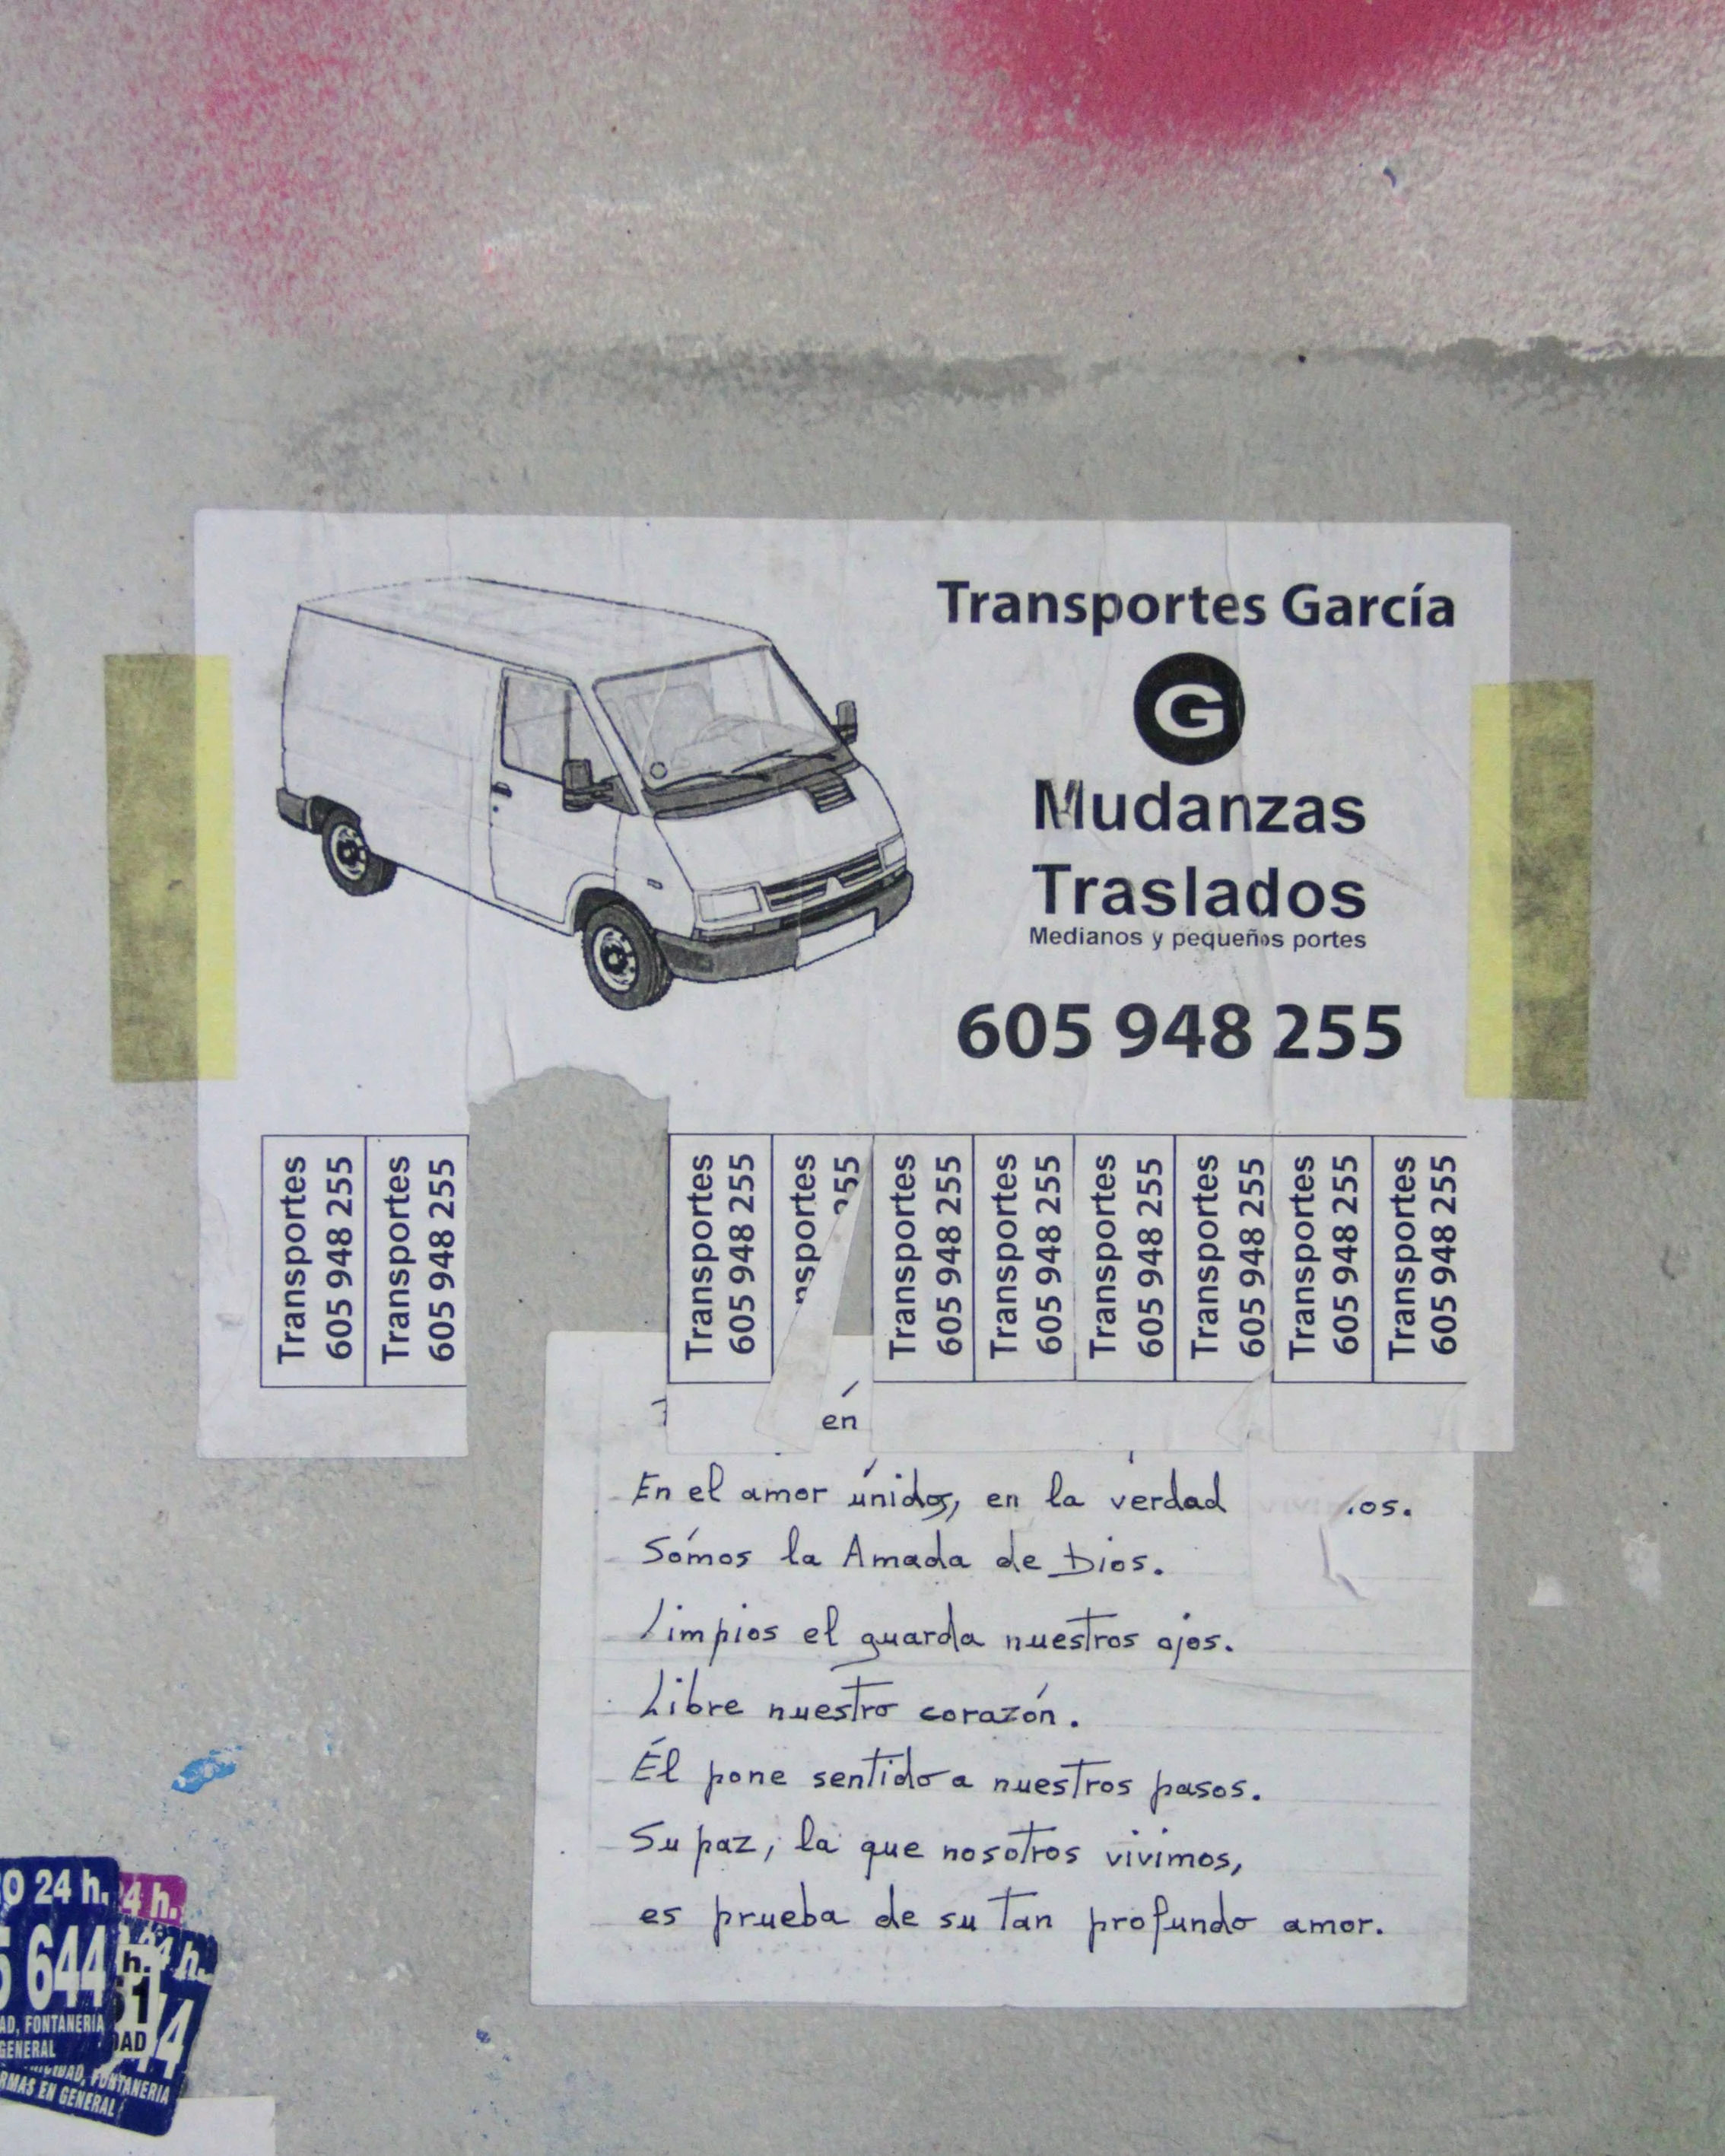 Transportes García
G
Mudanzas
Traslados
Medianos y pequeños portes
605 948 255
Transportes
605 948 255
Transportes
605 948 255
Transportes
605 948 255
nsportes
255
Transportes
605 948 255
Transportes
605 948 255
Transportes
605 948 255
Transportes
605 948 255
Transportes
605 948 255
Transportes
605 948 255
én
En el amor únidos, en la verdad .os.
Sómos la Amada de Dios.
Limpios el guarda nuestros ojos.
Libre nuestro corazón.
Él pone sentido a nuestros pasos.
Su paz, la que nosotros vivimos,
es prueba de su tan profundo amor.
O 24 h.
4 h.
5 644
4 h.
h.
51
44
AD, FONTANERIA
GENERAL
DAD
IDAD, FONTANERIA
RMAS EN GENERAL